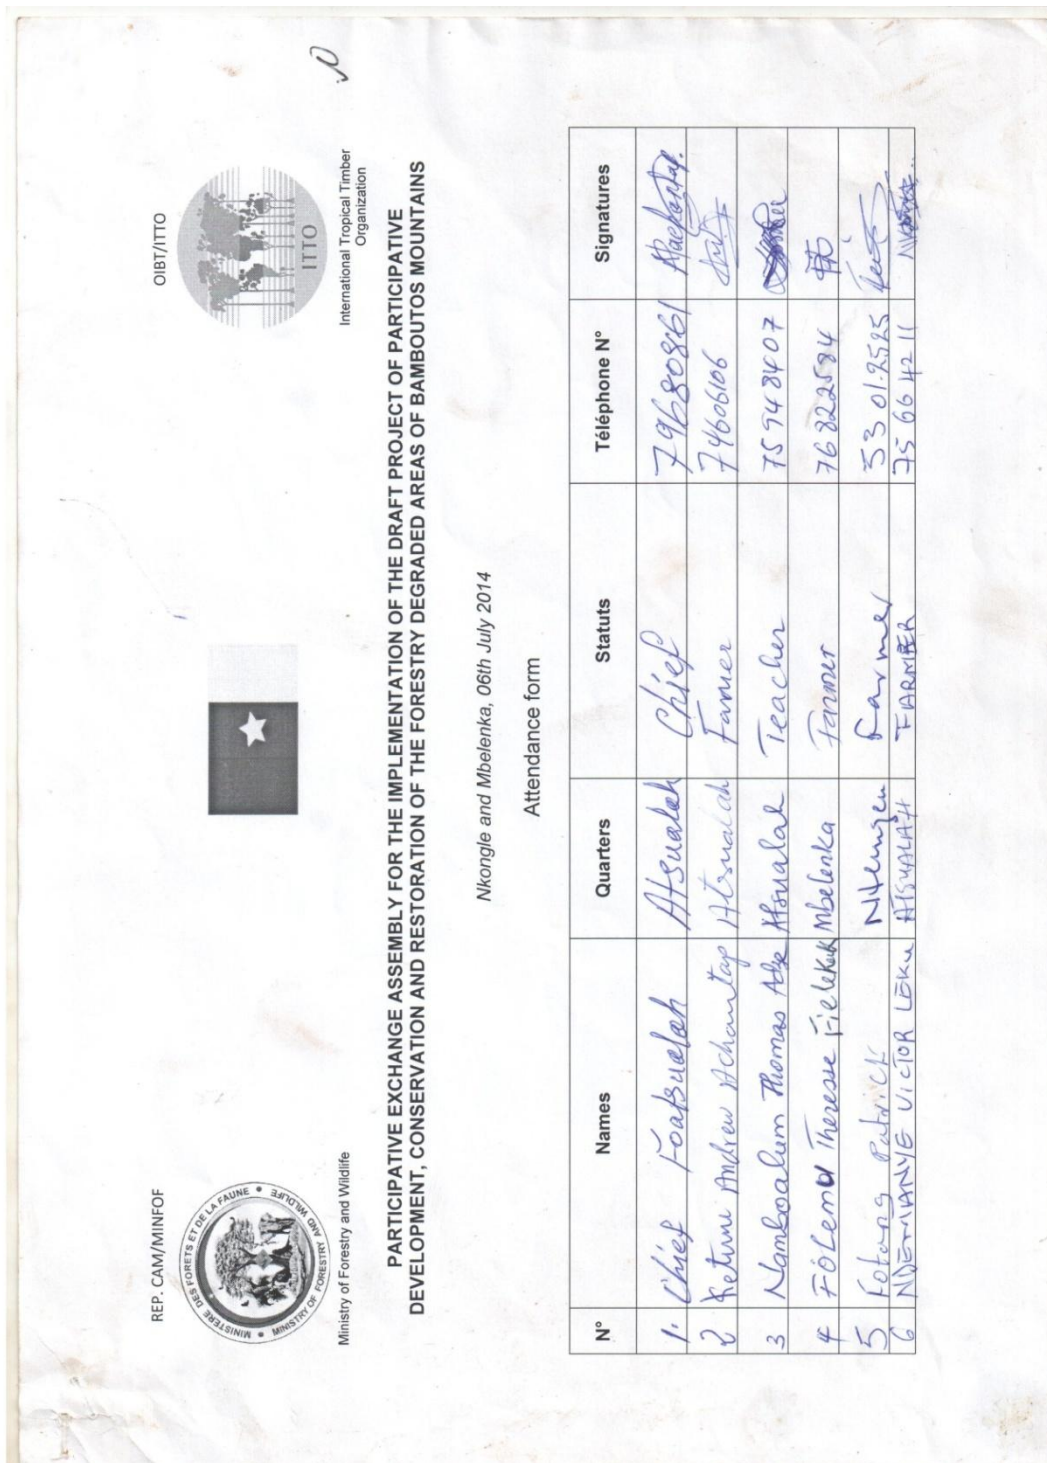 REP. CAM/MINFOF
MINISTERE DES FORETS ET DE LA FAUNE
MINISTRY OF FORESTRY AND WILDLIFE
Ministry of Forestry and Wildlife
OIBT/ITTO
ITTO
International Tropical Timber
Organization
PARTICIPATIVE EXCHANGE ASSEMBLY FOR THE IMPLEMENTATION OF THE DRAFT PROJECT OF PARTICIPATIVE
DEVELOPMENT, CONSERVATION AND RESTORATION OF THE FORESTRY DEGRADED AREAS OF BAMBOUTOS MOUNTAINS
Nkongle and Mbelenka, 06th July 2014
Attendance form
N° Names Quarters Statuts Téléphone N° Signatures
1. Chief Foatsualah Atsualah Chief 79680861
2 Ketumu Andrew Achamtap Atsualah Famer 74606106
3 Namboalum Thomas Atsualah Teacher 75948407
4 Folemu Theresse Mbelenka Farmer 76822584
5 Fotang Patrick Farmer 33 01.2525
6 NDEMANYE VICTOR LEKU ATSUALAH FARMER 75 66 42 11